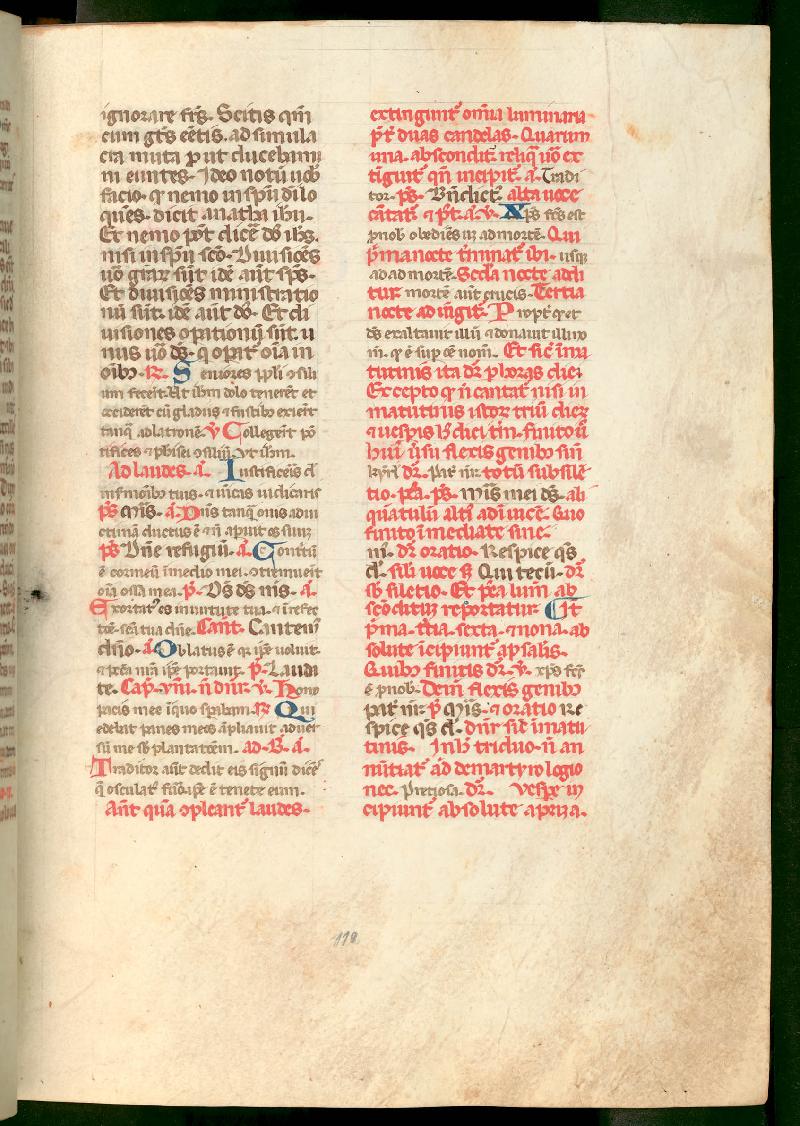 ignorare frs̄. Scitis qm̄
cum gēs ēetis. ad simula
cra muta p̱ut ducebami
ni euntes. Ideo notū uob̄
facio. q̄ nemo in spū di lo
ques. dicit anatha ihu.
Et nemo pōt dicē dn̄s ihs.
nisi in spū scō. Diuisiōes
uō grār sūt idē aūt sps̄.
Et diuisiōes ministratio
nū sūt. idē aūt dn̄s. Et di
uisiones opationū sūt. u
nus uō ds̄. q opat̄ oīa in
oībꝫ. R̄. Seniores ppli ꝯsili
um fecerūt. Ut ihm dolo tenerēt et
occiderēt cū gladiis ⁊ fustibꝫ exierūt
tanq̄ ad latronē. V̄ Collegerūt pō
tifices ⁊ pharisei ꝯsiliū. Ut ihm.
Ad laudes. a. Iustificeris dn̄
in s̄monibꝫ tuis. ⁊ uīcas cū iudicaris
ps̄ Mis̄. a. Dn̄s tanq̄ ouis ad ui
ctimā ductus ē ⁊ n̄ apuit os suū
ps̄ Dn̄e refugiū. a. Contritū
ē cor meū ī medio mei. ꝯtremuerūt
oīa ossa mea. p̄. Ds̄ ds̄ ms̄. a.
Exortat̄ es in uirtute tua. ⁊ ī refec
tōe scā tua dn̄e. Cant̄. Cantem
dn̄o. a. Oblatus ē q̄ ip̄e uoluit.
⁊ pctā nrā ip̄e portauit. p̄. Lauda
te. Cap̄. ꝟm̄. n̄ dnr̄. V̄. Homo
pacis mee ī quo sp̱abam. R̄ Qui
edebat panes meos ap̱liauit aduer
sū me sb̄ plantatōem. ad. B. a.
Traditor aūt dedit eis signū dicē
q̄ osculat̄ fuo ip̄e ē tenete eum.
Ant̄ qua ꝯpleant̄ laudes.
extingunt̄ omīa luminaria
p̄t̄ duas candelas. Quarum
una. abscondit̄. reliq̄ uō ex
tīguit̄ qn̄ incipit̄. a. Tradi
tor. ps̄. Bn̄dict̄. alta uoce
cātat̄ ⁊ p̄t̄. a. V̄. Xp̄s fc̄s est
p nob̄ obediēs usq̄ ad mortē. Qui
p̄ma nocte tīminat̄ ibi. usq̄
ad ad mortē. Scd̄a nocte addi
tur mortē aūt crucis. Tertia
nocte adiūgit̄. Propt̄ q̄ et
ds̄ exaltauit illū ⁊ donauit illi no
m̄. q̄ ē sup̱ oē nom̄. Et sic ī ma
tutinis ita dr̄ p̱ horas diei
Excepto q̄ n̄ cantat̄ nisi in
matutinis istor̄ triū dierꝫ
⁊ uesp̱is hꝰ diei tm̄. finito ū
hui ūsu flexis genibꝫ sm̄
kyrī dr̄. Pat̄ nr̄. totū sub sile
tio. p̄ea. ps̄. Mis̄ mei ds̄. ali
quātulū alti adīuicē. Quo
finito īmediate sine.
ni. dr̄ oratio. Respice q̄s
dn̄. sili uoce sꝫ Qui tecū. dr̄
sb̄ silētio. Et p̄ea lum̄ ab
scōditū reportatur. Ct̄
p̄ma. tīa. sexta. ⁊ nona. ab
solute īcipiunt̄ a p̱salmis.
Quibꝫ finitis dr̄. V̄. Xp̄s fc̄s
ē p nob̄. Demū flexis genibꝫ
pat̄ nr̄. p̄ Mis̄. ⁊ oratio Re
spice q̄s dn̄. dnr̄ sic̄ ī matu
tinis. In hꝫ triduo. n̄ an
nūtiat̄ ad de martyrologio
nec. Pretiosa. dr̄. Vesp̱e in
cipiunt̄ absolute a p̱sā.
119